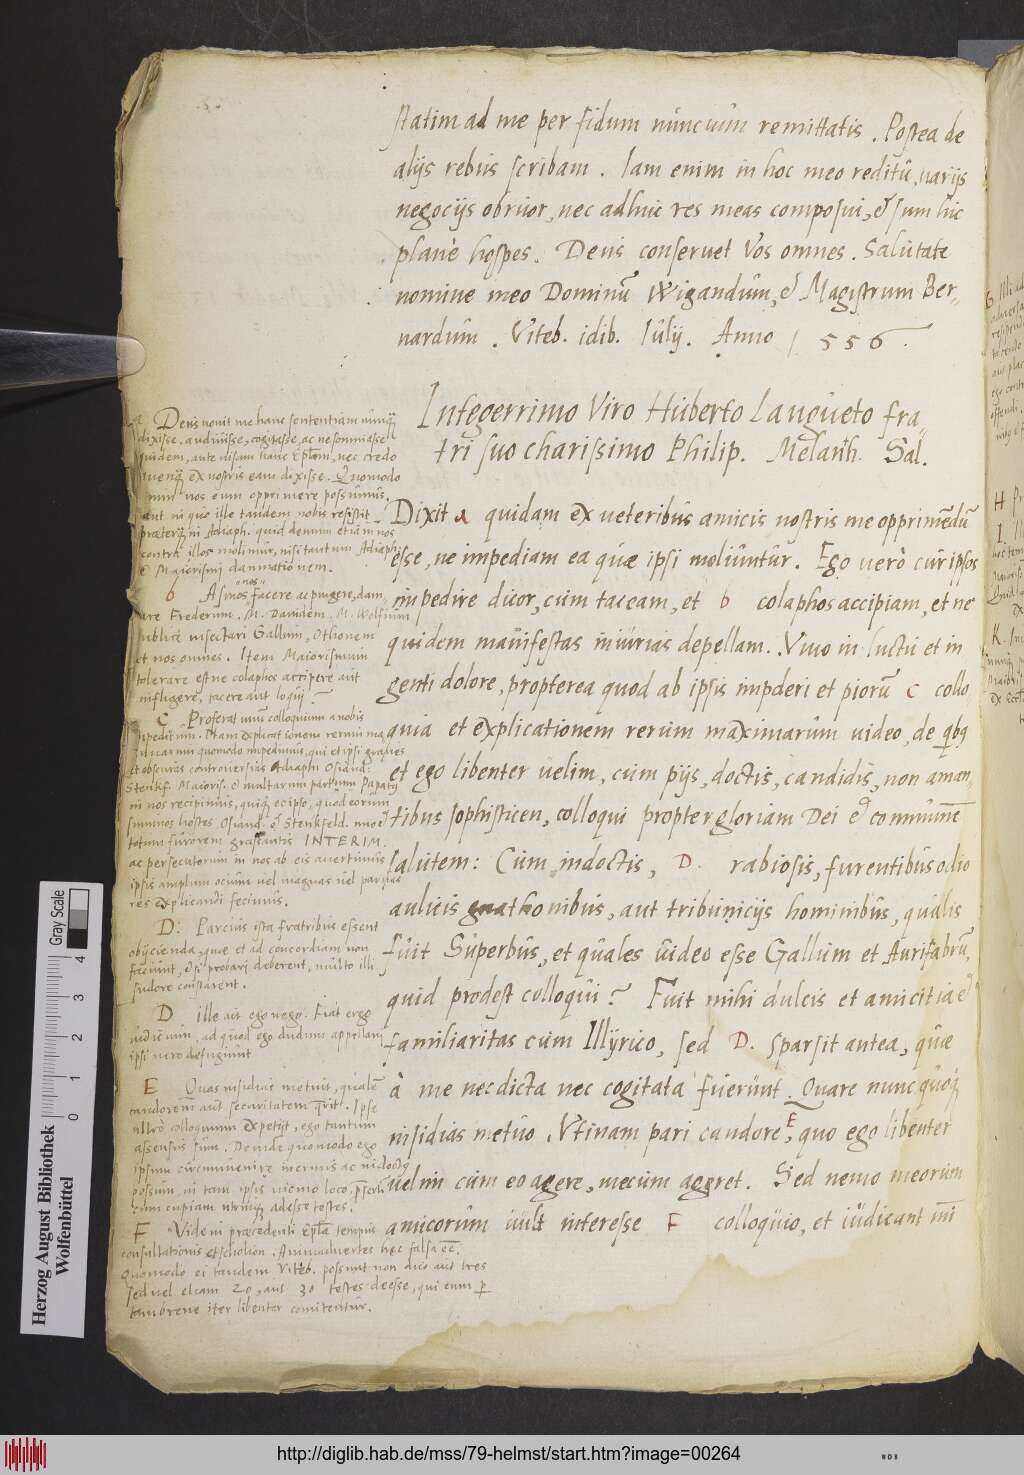 statim ad me per fidum nuncium remittatis. Postea de
alijs rebus scribam. Iam enim in hoc meo reditu, uarijs
negocijs obruor, nec adhuc res meas composui, et sum hic
planè hospes. Deus conseruet Vos omnes. Salutate
nomine meo Dominū Wigandum, et Magistrum Ber-
nardum. Viteb. idib. Iulij. Anno 1556.
Integerrimo Viro Huberto Langueto fra-
tri suo charissimo Philip. Melanth. Sal.
Dixit a quidam ex ueteribus amicis nostris me opprimēdū
esse, ne impediam ea quæ ipsi moliuntur. Ego uerò cur ipsos
impedire dicor, cum taceam, et b colaphos accipiam, et ne
quidem manifestas iniurias depellam. Viuo in luctu et in
genti dolore, propterea quod ab ipsis impderi et piorū C collo
quia et explicationem rerum maximarum uideo, de qbq
et ego libenter uelim, cum pijs, doctis, candidis, non aman-
tibus sophisticen, colloqui propter gloriam Dei et communē
salutem: Cum indoctis, D. rabiosis, furentibus odio
aulicis gnathonibus, aut tribunicijs hominibus, qualis
fuit Superbus, et quales uideo esse Gallum et Aurifabrū,
quid prodest colloqui? Fuit mihi dulcis et amicitia et
familiaritas cum Illÿrico, sed D. sparsit antea, quæ
à me nec dicta nec cogitata fuerunt. Quare nunc quoq
insidias metuo. Vtinam pari candore, E quo ego libenter
uelim cum eo agere, mecum ageret. Sed nemo meorum
amicorum uult interesse F colloquio, et iudicant mī
a Deus nouit me hanc sententiam nunq
dixisse, audiuisse, cogitasse, ac ne somniasse
quidem, ante uisam hanc Epłam, nec credo
quenq ex nostris eam dixisse. Quomodo
enim nos eum opprimere possumus,
aut in quo ille tandem nobis resistit
præterq in Adiaph. quid demum etiam nos
contra illos molimur, nisi tantum Adiaph
et Maiorismi damnationem.
b Asinos nos facere ac pingere, dam
nare Frederum, M. Dauidem, M. Wolfium
publice insectari Gallum, Othonem
et nos omnes. Item Maiorismum
tolerare estne colaphos accipere aut
infligere, tacere aut loqui?
C Proferat unum colloquium a nobis
impeditum. Nam explicationem rerum ma
ximarum quomodo impedimus, qui et ipsi graues
et obscuras controuersias Adiaph. Osiand.
Stenkf. Maioris. et multarum partium Papatus
in nos recipimus, quiq ec ipso, quod eorum
summos hostes, Osiand. et Stenkfeld.
totum furorem grassantis INTERIM.
ac persecutorum in nos ab eis auertimus
ipsis amplum ocium uel magnas uel paruas
res explicandi fecimus.
D: Parcius ista fratribus essent
obijcienda, quæ et ad concordiam non
faciunt, et si probari deberent, multo illi
sudore constarent.
D ille ait ego nego. Fiat ergo
iudicium, ad quod ego dudum appellaui
ipsi uero defugiunt
E Quas insidias metuit, qualē
candorem aut securitatem qrit. Ipse
ultrò colloquium expetijt, ego tantum
assensus sum. Deinde quomodo ego
ipsum circumuenire inermis ac indoctq
possum, in tam ipsis uicino loco, psertī
cum cupiam utrinq adesse testes.
F Vide in præcedenti Epła tempus
consultationis et scholion. Animaduertes hęc falsa eē.
Quomodo ei tandem Viteb. possunt non dico aut tres
sed uel etiam 20, aut 30 testes deesse, qui eum p
tam breue iter libenter comitentur.
Gray Scale
0 1 2 3 4
Herzog August Bibliothek
Wolfenbüttel
http://diglib.hab.de/mss/79-helmst/start.htm?image=00264